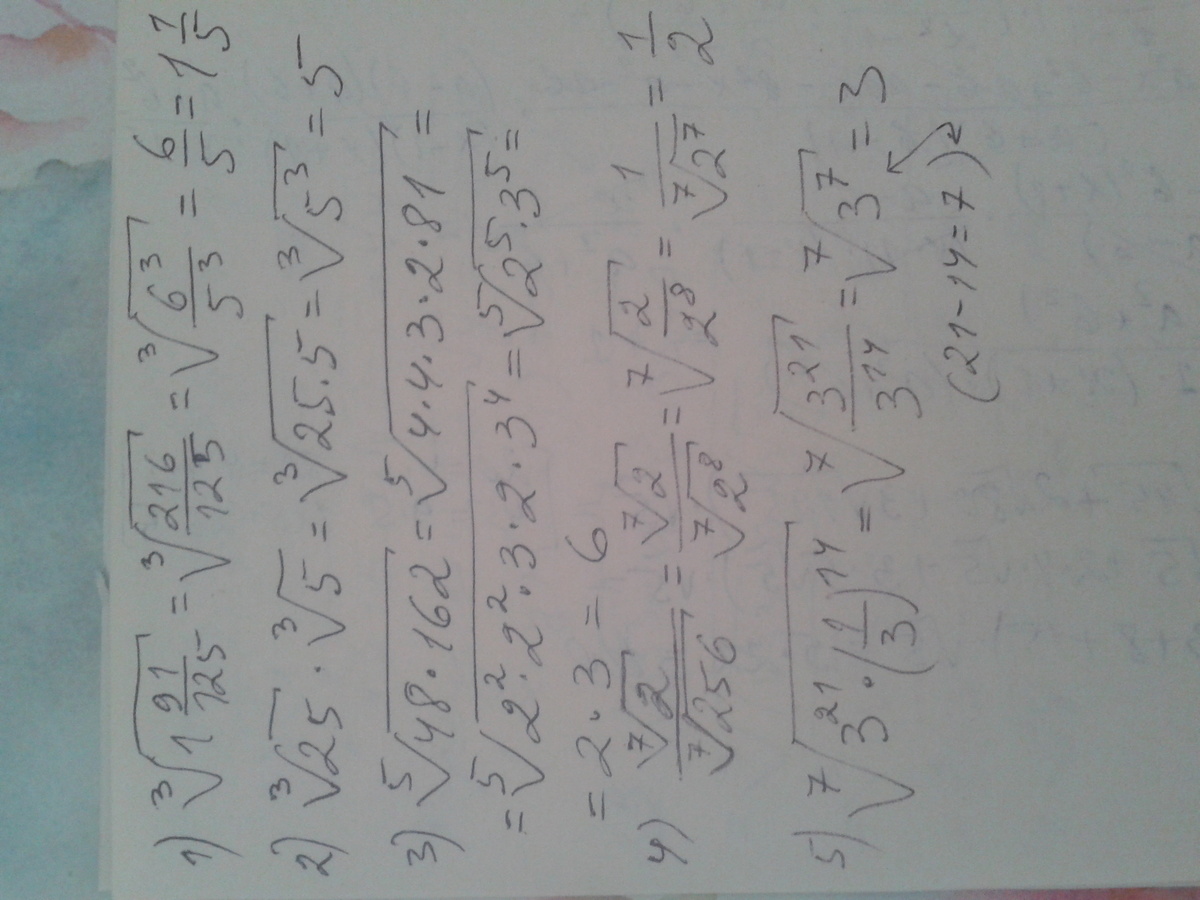 1) ∛(1 91/125) = ∛(216/125) = ∛(6³/5³) = 6/5 = 1 1/5
2) ∛25 · ∛5 = ∛(25·5) = ∛(5³) = 5
3) ⁵√(48·162) = ⁵√(4·4·3·2·81) =
= ⁵√(2²·2²·3·2·3⁴) = ⁵√(2⁵·3⁵) =
= 2·3 = 6
4) ⁷√2/⁷√256 = ⁷√2/⁷√(2⁸) = ⁷√(2/2⁸) = 1/⁷√(2⁷) = 1/2
5) ⁷√(3²¹·(1/3)¹⁴) = ⁷√(3²¹/3¹⁴) = ⁷√(3⁷) = 3
(21-14=7)